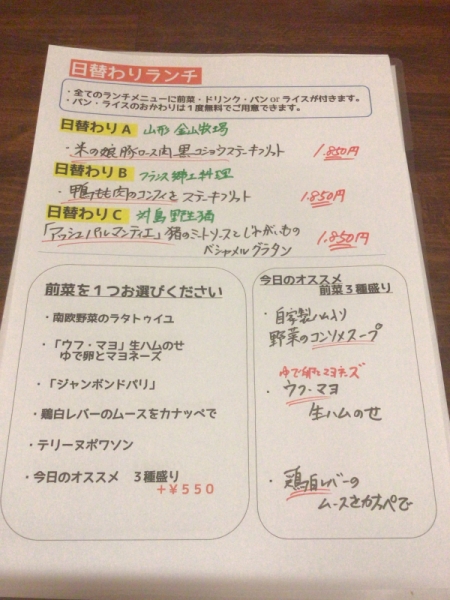 日替わりランチ
・全てのランチメニューに前菜・ドリンク・パン or ライスが付きます。
・パン・ライスのおかわりは１度無料でご用意できます。
日替わり A 山形 金山牧場
・米の娘豚ロース肉 黒コショウステーキフリット 1.850円
日替わり B フランス郷土料理
・鴨もも肉のコンフィとステーキフリット 1.850円
日替わり C 対島 野生猪
「アッシェパルマンティエ」猪のミートソースとじゃがいもの 1.850円
ベシャメルグラタン
前菜を１つお選びください
・南欧野菜のラタトゥイユ
・「ウフ・マヨ」生ハムのせ
ゆで卵とマヨネーズ
・「ジャンボンドパリ」
・鶏白レバーのムースをカナッペで
・テリーヌポワソン
・今日のオススメ　３種盛り
＋￥５５０
今日のオススメ
前菜３種盛り
・自家製ハム入り
野菜のコンソメスープ
ゆで卵とマヨネーズ
・ウフ・マヨ
生ハムのせ
・鶏白レバーの
ムースをカナッペで